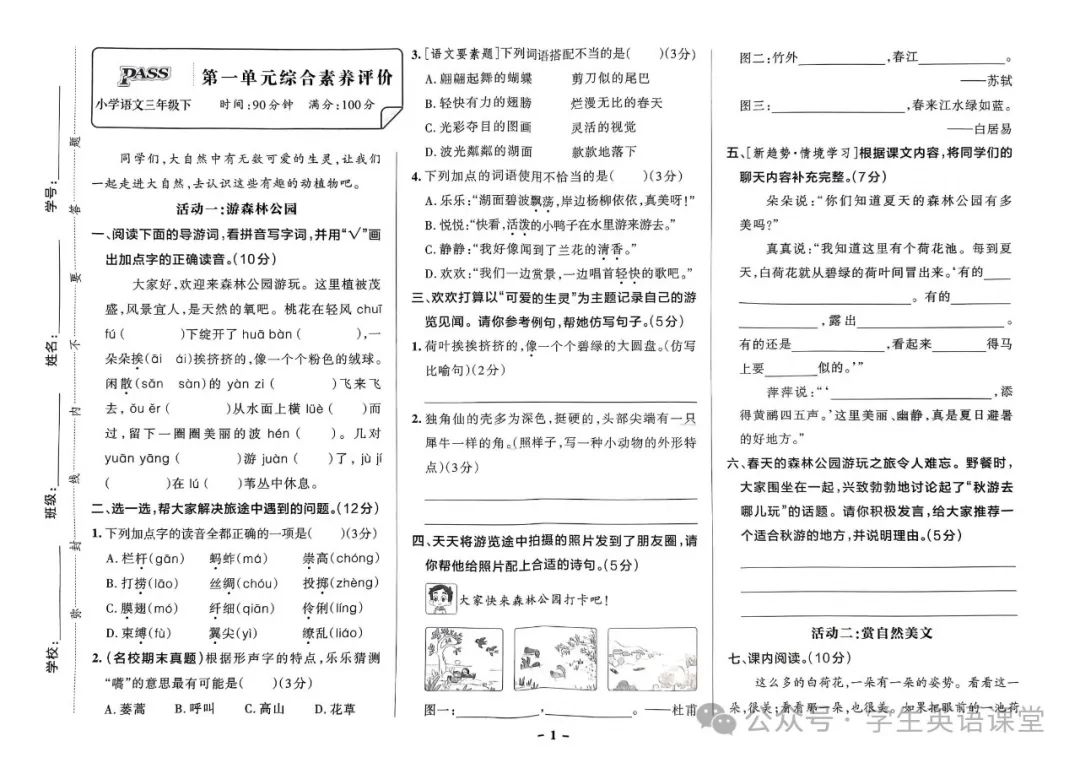 学校：
班级：
姓名：
学号：
弥
封
线
内
不
要
答
题
PASS
第一单元综合素养评价
小学语文三年级下 时间：90分钟 满分：100分
同学们，大自然中有无数可爱的生灵，让我们
一起走进大自然，去认识这些有趣的动植物吧。
活动一：游森林公园
一、阅读下面的导游词，看拼音写字词，并用“√”画
出加点字的正确读音。（10分）
大家好，欢迎来森林公园游玩。这里植被茂
盛，风景宜人，是天然的氧吧。桃花在轻风 chuī
fú（ ）下绽开了 huā bàn（ ），一
朵朵挨（āi ái）挨挤挤的，像一个个粉色的绒球。
闲散（sǎn sàn）的 yàn zi（ ）飞来飞
去，ǒu ěr（ ）从水面上横 lüè（ ）而
过，留下一圈圈美丽的波 hén（ ）。几对
yuān yāng（ ）游 juàn（ ）了，jù jí
（ ）在 lú（ ）苇丛中休息。
二、选一选，帮大家解决旅途中遇到的问题。（12分）
1. 下列加点字的读音全都正确的一项是（ ）（3分）
A. 栏杆（gān） 蚂蚱（má） 崇高（chóng）
B. 打捞（lāo） 丝绸（chóu） 投掷（zhèng）
C. 膜翅（mó） 纤细（qiān） 伶俐（líng）
D. 束缚（fù） 翼尖（yì） 缭乱（liáo）
2.（名校期末真题）根据形声字的特点，乐乐猜测
“嚆”的意思最有可能是（ ）（3分）
A. 蒌蒿 B. 呼叫 C. 高山 D. 花草
3.［语文要素题］下列词语搭配不当的是（ ）（3分）
A. 翩翩起舞的蝴蝶 剪刀似的尾巴
B. 轻快有力的翅膀 烂漫无比的春天
C. 光彩夺目的图画 灵活的视觉
D. 波光粼粼的湖面 款款地落下
4. 下列加点的词语使用不恰当的是（ ）（3分）
A. 乐乐：“湖面碧波飘荡，岸边杨柳依依，真美呀！”
B. 悦悦：“快看，活泼的小鸭子在水里游来游去。”
C. 静静：“我好像闻到了兰花的清香。”
D. 欢欢：“我们一边赏景，一边唱首轻快的歌吧。”
三、欢欢打算以“可爱的生灵”为主题记录自己的游
览见闻。请你参考例句，帮她仿写句子。（5分）
1. 荷叶挨挨挤挤的，像一个个碧绿的大圆盘。（仿写
比喻句）（2分）
2. 独角仙的壳多为深色，挺硬的，头部尖端有一只
犀牛一样的角。（照样子，写一种小动物的外形特
点）（3分）
四、天天将游览途中拍摄的照片发到了朋友圈，请
你帮他给照片配上合适的诗句。（5分）
大家快来森林公园打卡吧！
图一：＿＿＿＿，＿＿＿＿。——杜甫
图二：竹外＿＿＿＿，春江＿＿＿＿。
——苏轼
图三：＿＿＿＿，春来江水绿如蓝。
——白居易
五、［新趋势·情境学习］根据课文内容，将同学们的
聊天内容补充完整。（7分）
朵朵说：“你们知道夏天的森林公园有多
美吗？”
真真说：“我知道这里有个荷花池。每到夏
天，白荷花就从碧绿的荷叶间冒出来。‘有的＿＿
＿＿＿＿。有的＿＿＿＿
＿＿＿＿，露出＿＿＿＿。
有的还是＿＿＿＿，看起来＿＿＿＿得马
上要＿＿＿＿似的。’”
萍萍说：“‘＿＿＿＿，添
得黄鹂四五声。’这里美丽、幽静，真是夏日避暑
的好地方。”
六、春天的森林公园游玩之旅令人难忘。野餐时，
大家围坐在一起，兴致勃勃地讨论起了“秋游去
哪儿玩”的话题。请你积极发言，给大家推荐一
个适合秋游的地方，并说明理由。（5分）
活动二：赏自然美文
七、课内阅读。（10分）
这么多的白荷花，一朵有一朵的姿势。看看这一
朵，很美；看看那一朵，也很美。如果把眼前的一池荷
公众号·学生英语课堂
- 1 -